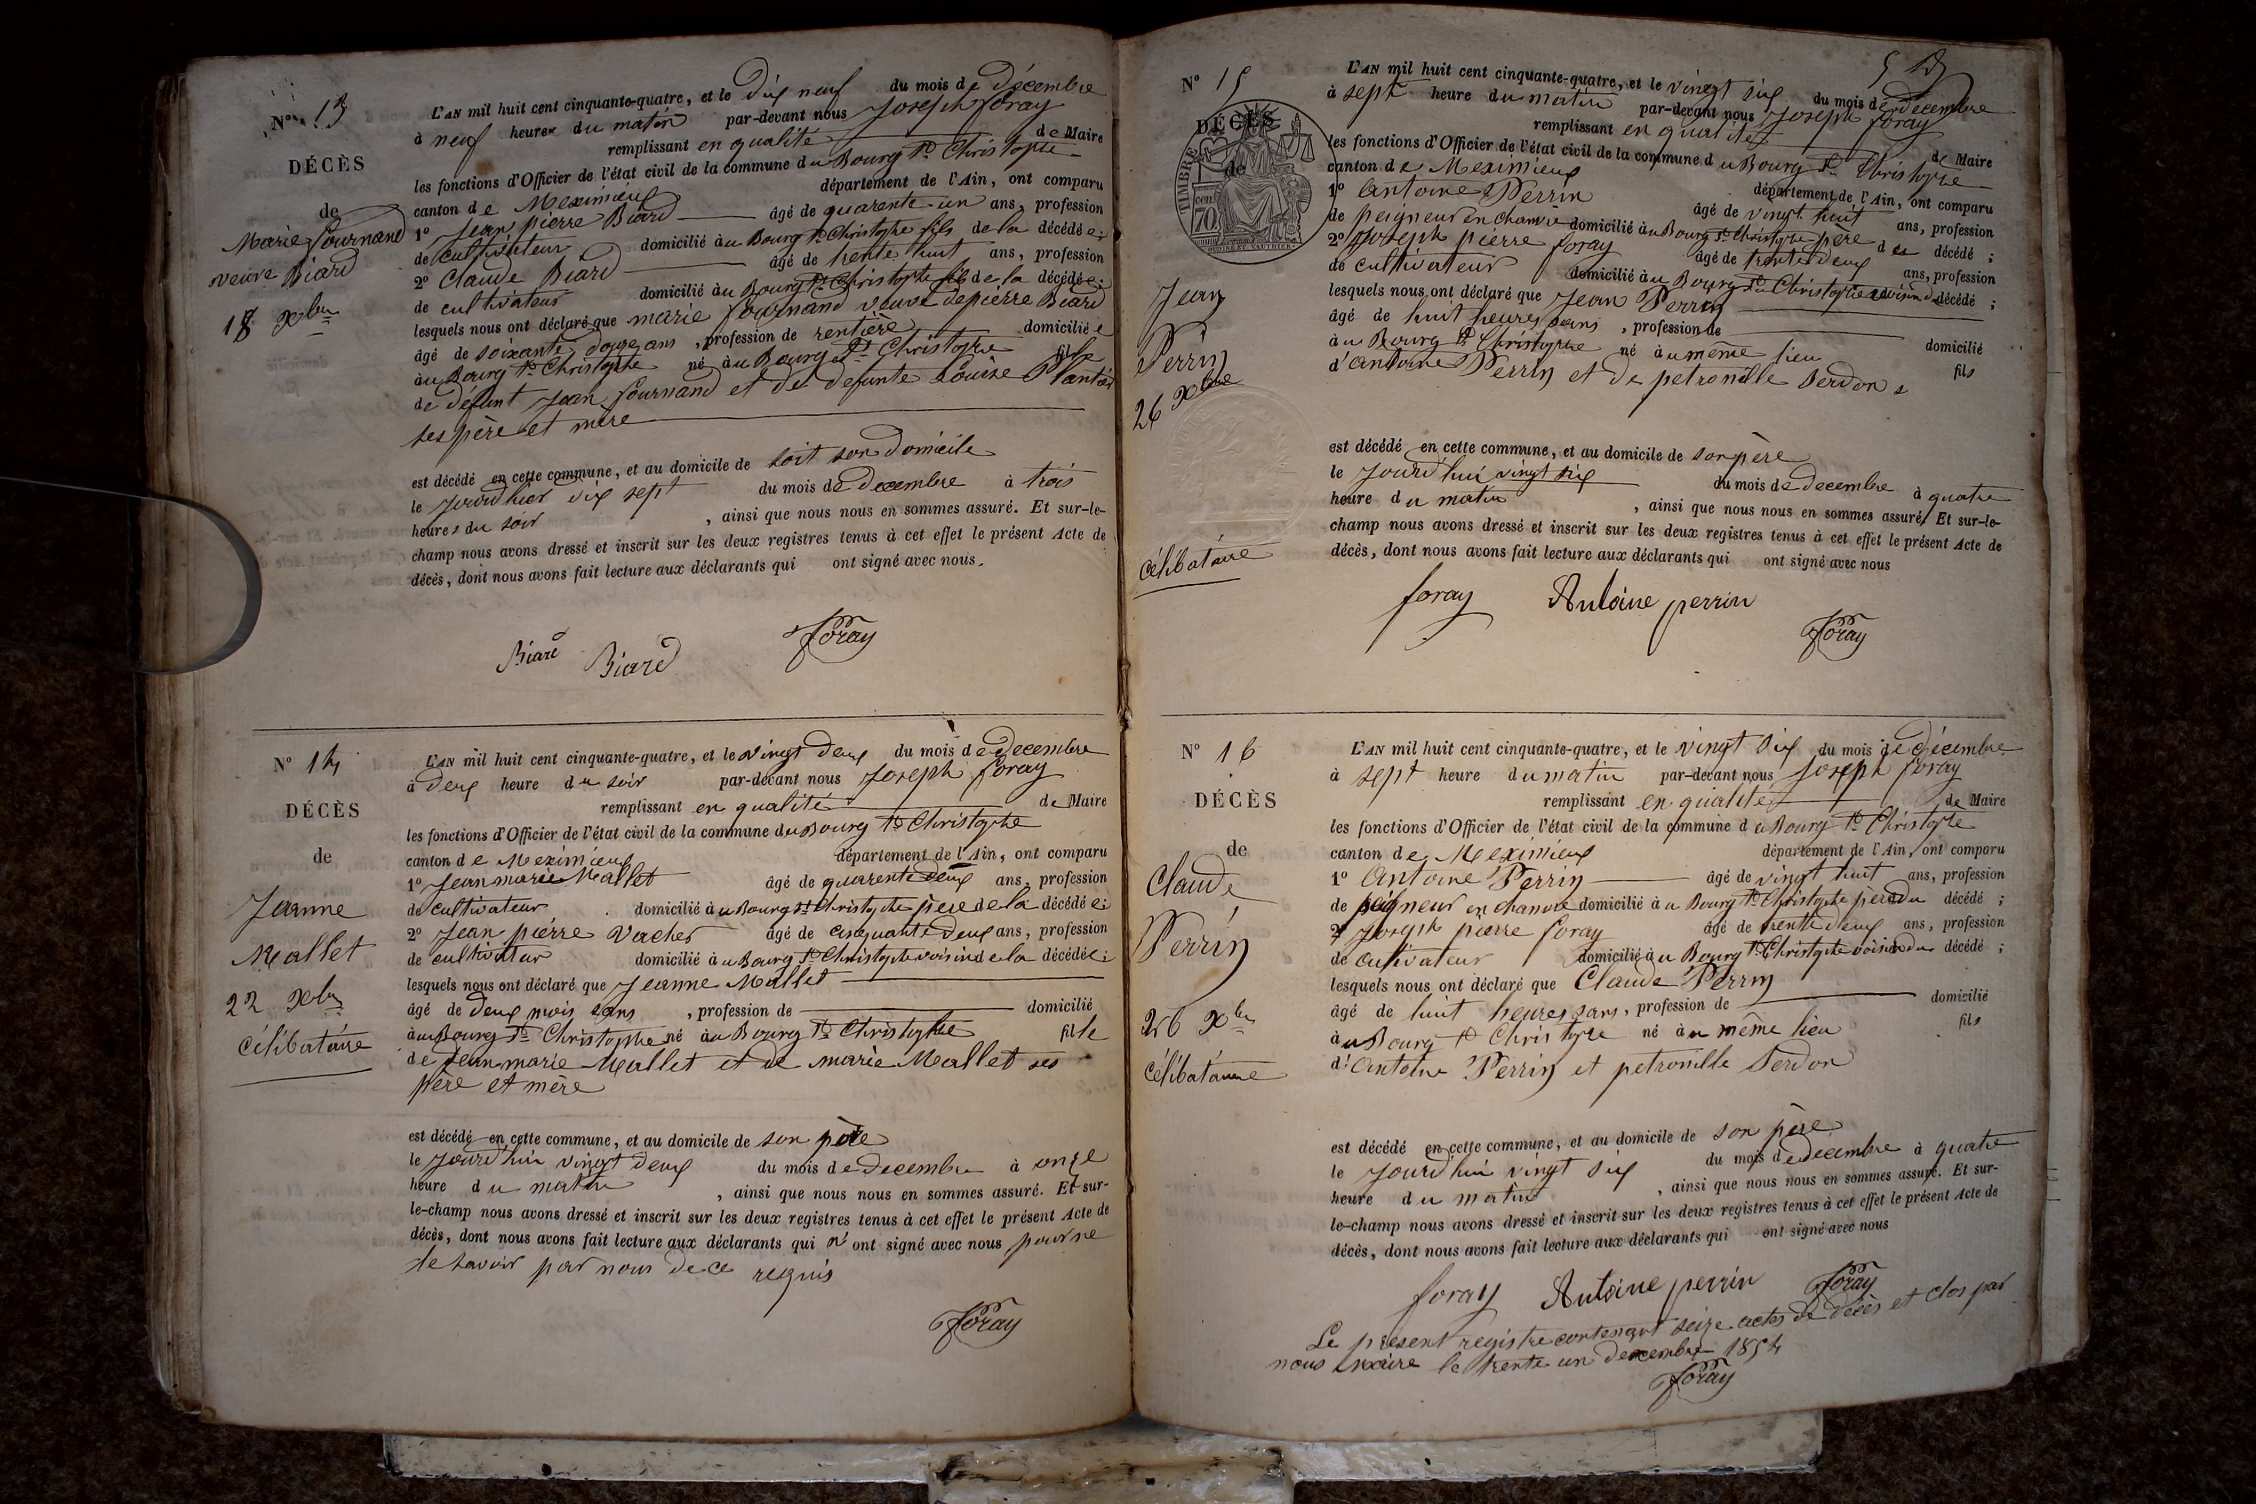 N° 13
DÉCÈS
de
Marie fournand
veuve Biard
18 Xbre
L'AN mil huit cent cinquante-quatre, et le Dix neuf du mois de Décembre
à neuf heures du matin par-devant nous Joseph foray
remplissant en qualité de Maire
les fonctions d'Officier de l'état civil de la commune du Bourg St Christophe
canton de Meximieux département de l'Ain, ont comparu
1° Jean pierre Biard âgé de quarente un ans, profession
de cultivateur domicilié au Bourg St Christophe fils de la décédée;
2° Claude Biard âgé de trente huit ans, profession
de cultivateur domicilié au Bourg St Christophe fils de la décédée;
lesquels nous ont déclaré que marie fournand veuve de pierre Biard
âgé de soixante douze ans, profession de rentière domicilié e
au Bourg St Christophe né au Bourg St Christophe fille
de défunt Jean fournand et de defunte Louise
ses père et mère
est décédé en cette commune, et au domicile de soit son domicile
le Jourd'hier dix sept du mois de decembre à trois
heures du soir, ainsi que nous nous en sommes assuré. Et sur-le-
champ nous avons dressé et inscrit sur les deux registres tenus à cet effet le présent Acte de
décès, dont nous avons fait lecture aux déclarants qui ont signé avec nous.
Biard Biard foray
N° 14
DÉCÈS
de
Jeanne
Mallet
22 Xbre
Célibataire
L'AN mil huit cent cinquante-quatre, et le vingt deux du mois de decembre
à deux heure du soir par-devant nous Joseph foray
remplissant en qualité de Maire
les fonctions d'Officier de l'état civil de la commune du Bourg St Christophe
canton de Meximieux département de l'Ain, ont comparu
1° Jean marie Mallet âgé de quarente deux ans, profession
de cultivateur domicilié au Bourg St Christophe père de la décédée;
2° Jean pierre Vacher âgé de cinquante deux ans, profession
de cultivateur domicilié au Bourg St Christophe voisin de la décédée;
lesquels nous ont déclaré que Jeanne Mallet
âgé de deux mois sans, profession de domicilié
au Bourg St Christophe né au Bourg St Christophe fille
de Jean marie Mallet et de marie Mallet ses
père et mère
est décédé en cette commune, et au domicile de son père
le Jourd'hui vingt deux du mois de decembre à onze
heure du matin, ainsi que nous nous en sommes assuré. Et sur-
le-champ nous avons dressé et inscrit sur les deux registres tenus à cet effet le présent Acte de
décès, dont nous avons fait lecture aux déclarants qui n'ont signé avec nous pour ne
le savoir par nous de ce requis
foray
N° 15
DÉCÈS
de
TIMBRE
70
Jean
Perrin
26 Xbre
Célibataire
L'AN mil huit cent cinquante-quatre, et le vingt six du mois de decembre
à sept heure du matin par-devant nous Joseph foray
remplissant en qualité de Maire
les fonctions d'Officier de l'état civil de la commune du Bourg St Christophe
canton de Meximieux département de l'Ain, ont comparu
1° Antoine Perrin âgé de vingt huit ans, profession
de peigneur en chanvre domicilié au Bourg St Christophe père du décédé;
2° Joseph pierre foray âgé de trente deux ans, profession
de cultivateur domicilié au Bourg St Christophe voisin du décédé;
lesquels nous ont déclaré que Jean Perrin
âgé de huit heures sans, profession de domicilié
au Bourg St Christophe né au même lieu fils
d'Antoine Perrin et de petronille Serdon
est décédé en cette commune, et au domicile de son père
le Jourd'hui vingt six du mois de decembre à quatre
heure du matin, ainsi que nous nous en sommes assuré. Et sur-le-
champ nous avons dressé et inscrit sur les deux registres tenus à cet effet le présent Acte de
décès, dont nous avons fait lecture aux déclarants qui ont signé avec nous
foray Antoine perrin foray
N° 16
DÉCÈS
de
Claude
Perrin
26 Xbre
Célibataire
L'AN mil huit cent cinquante-quatre, et le vingt six du mois de décembre
à sept heure du matin par-devant nous Joseph foray
remplissant en qualité de Maire
les fonctions d'Officier de l'état civil de la commune du Bourg St Christophe
canton de Meximieux département de l'Ain, ont comparu
1° Antoine Perrin âgé de vingt huit ans, profession
de peigneur en chanvre domicilié au Bourg St Christophe père du décédé;
2° Joseph pierre foray âgé de trente deux ans, profession
de cultivateur domicilié au Bourg St Christophe voisin du décédé;
lesquels nous ont déclaré que Claude Perrin
âgé de huit heures sans, profession de domicilié
au Bourg St Christophe né au même lieu fils
d'Antoine Perrin et petronille Serdon
est décédé en cette commune, et au domicile de son père
le Jourd'hui vingt six du mois de decembre à quatre
heure du matin, ainsi que nous nous en sommes assuré. Et sur-
le-champ nous avons dressé et inscrit sur les deux registres tenus à cet effet le présent Acte de
décès, dont nous avons fait lecture aux déclarants qui ont signé avec nous
foray Antoine perrin foray
Le present registre contenant seize actes de décès et clos par
nous maire le trente un decembre 1854
foray